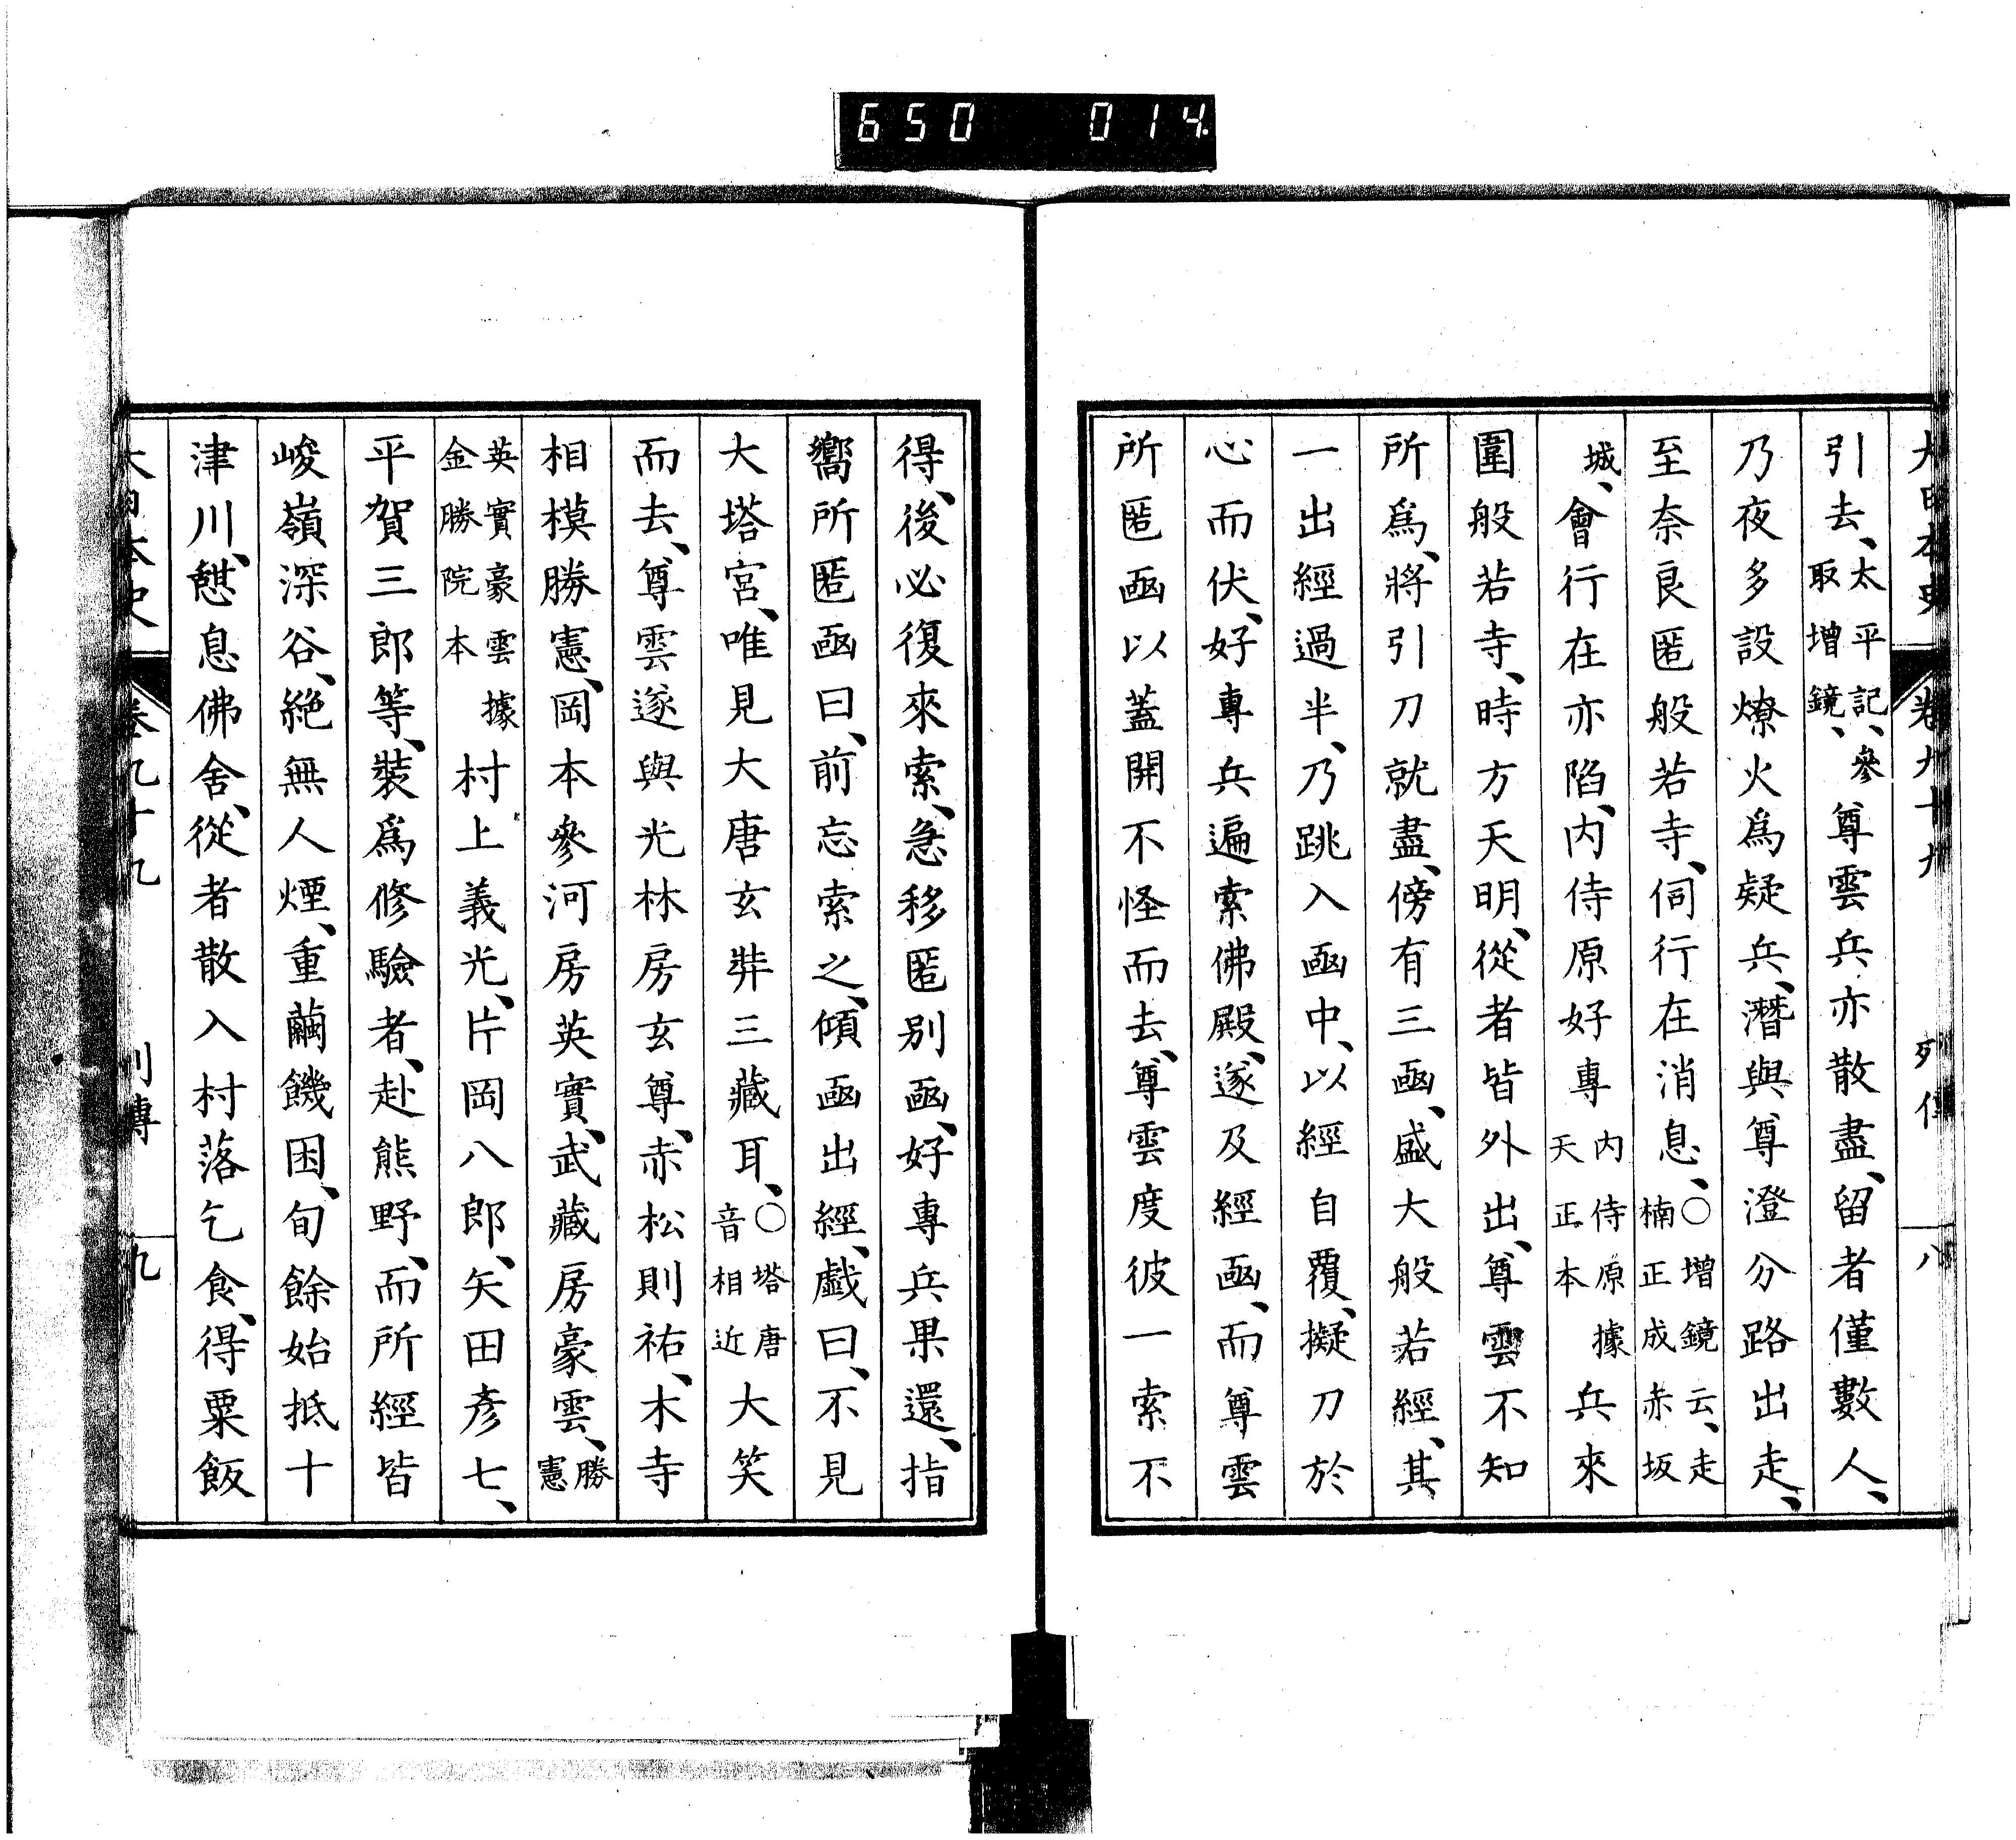 650 014
大日本史 卷九十九 列傳 八
引去、太平記、參取增鏡、尊雲兵亦散盡、留者僅數人、
乃夜多設燎火爲疑兵、潛與尊澄分路出走、
至奈良匿般若寺、伺行在消息、○增鏡云、走楠正成赤坂
城、會行在亦陷、内侍原好專内侍原據天正本兵來
圍般若寺、時方天明、從者皆外出、尊雲不知
所爲、將引刀就盡、傍有三凾、盛大般若經、其
一出經過半、乃跳入凾中、以經自覆、擬刀於
心而伏、好專兵遍索佛殿、遂及經凾、而尊雲
所匿凾以蓋開不怪而去、尊雲度彼一索不
得、後必復來索、急移匿別凾、好專兵果還、指
嚮所匿凾曰、前忘索之、傾凾出經、戲曰、不見
大塔宮、唯見大唐玄弉三藏耳、○塔唐音相近大笑
而去、尊雲遂與光林房玄尊、赤松則祐、木寺
相模勝憲、岡本參河房英實、武藏房豪雲、勝憲
英實豪雲據金勝院本村上義光、片岡八郎、矢田彥七、
平賀三郎等、裝爲修驗者、赴熊野、而所經皆
峻嶺深谷、絶無人煙、重繭饑困、旬餘始抵十
津川、憇息佛舍、從者散入村落乞食、得粟飯
大日本史 卷九十九 列傳 九